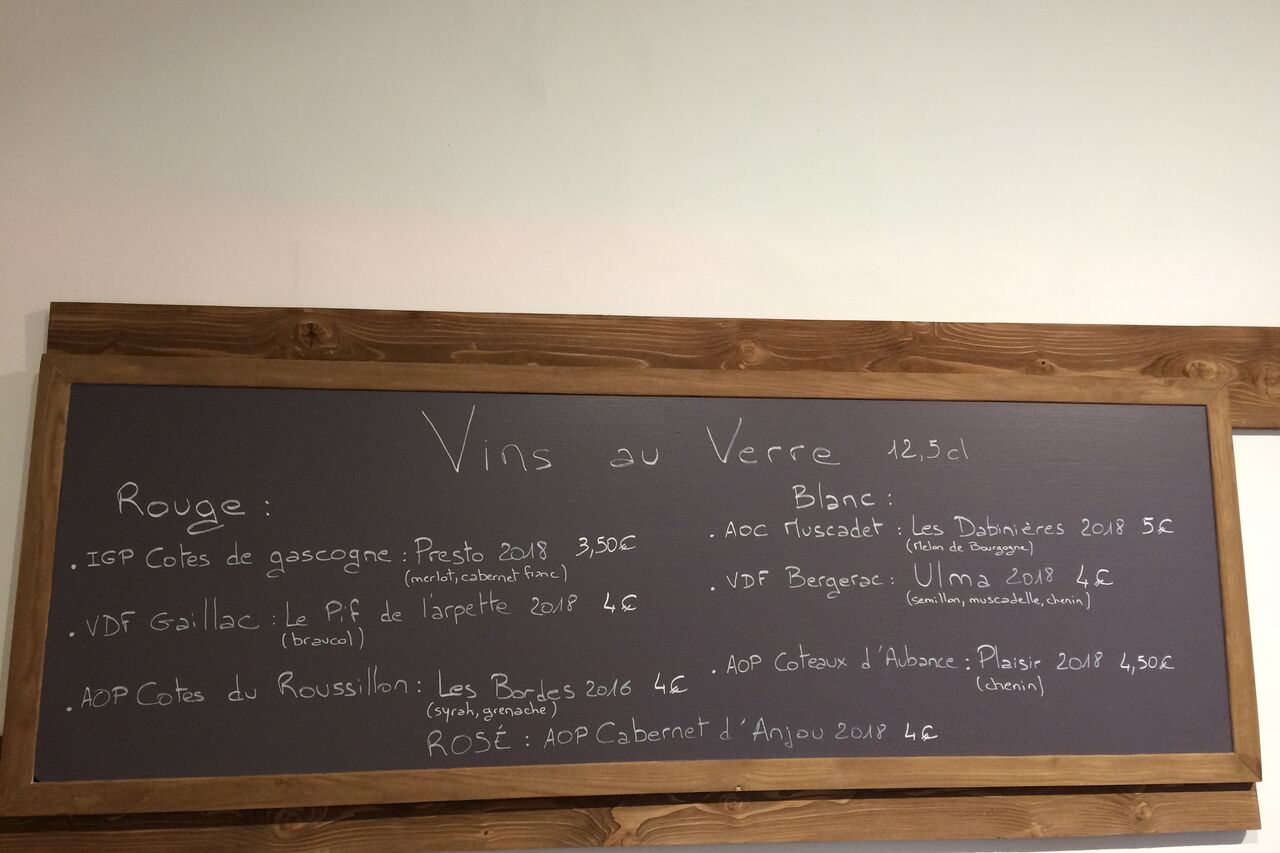 Vins au Verre 12,5cl
Rouge :
. IGP Cotes de gascogne : Presto 2018 3,50€
(merlot, cabernet franc)
. VDF Gaillac : Le Pif de l'arpette 2018 4€
(braucol)
. AOP Cotes du Roussillon : Les Bordes 2016 4€
(syrah, grenache)
Blanc :
. AOC Muscadet : Les Dabinières 2018 5€
(Melon de Bourgogne)
. VDF Bergerac : Ulma 2018 4€
(semillon, muscadelle, chenin)
. AOP Coteaux d'Aubance : Plaisir 2018 4,50€
(chenin)
ROSÉ : AOP Cabernet d'Anjou 2018 4€